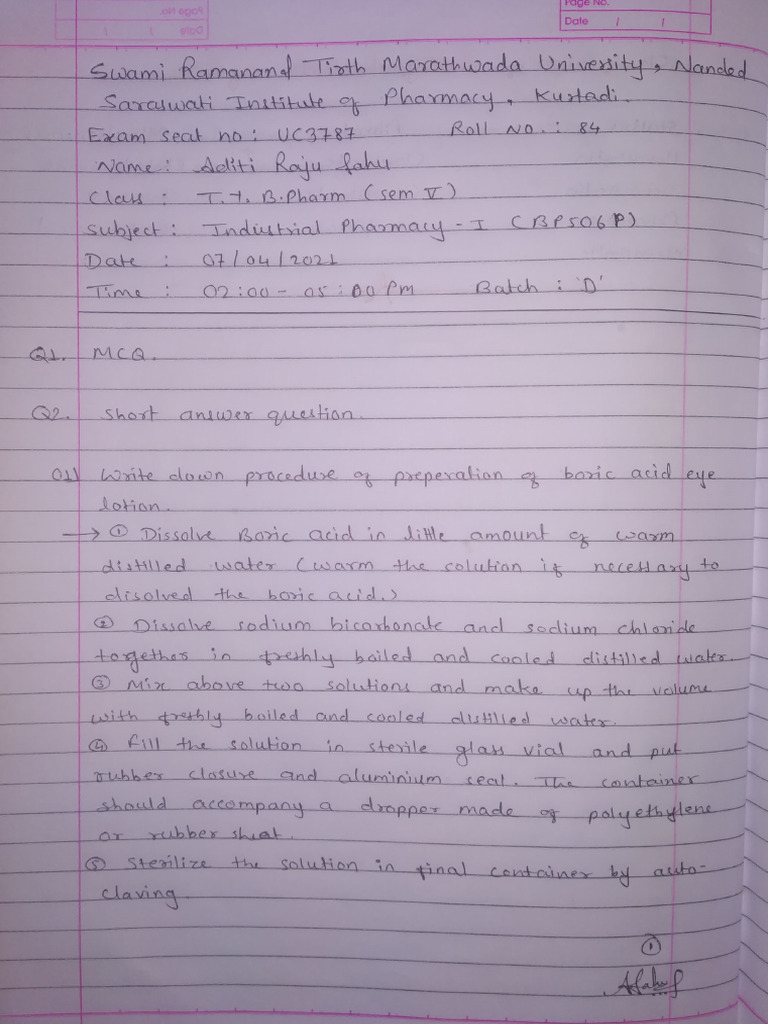 Page No.
Date / /
Swami Ramanand Tirth Marathwada University, Nanded
Saraswati Institute of Pharmacy, Kurtadi.
Exam seat no : UC3787 Roll No. : 84
Name : Aditi Raju Sahu
Class : T.Y. B.Pharm (sem V)
Subject : Industrial Pharmacy - I (BP506P)
Date : 07/04/2021
Time : 02:00 - 05:00 Pm Batch : 'D'
Q1. MCQ.
Q2. Short answer question.
01) Write down procedure of preperation of boric acid eye
lotion.
→ ① Dissolve Boric acid in little amount of warm
distilled water (warm the solution if necessary to
disolved the boric acid.)
② Dissolve sodium bicarbonate and sodium chloride
together in freshly boiled and cooled distilled water.
③ Mix above two solutions and make up the volume
with freshly boiled and cooled distilled water.
④ Fill the solution in sterile glass vial and put
rubber closure and aluminium seal. The container
should accompany a dropper made of polyethylene
or rubber
⑤ Sterilize the solution in final container by auto-
claving
①